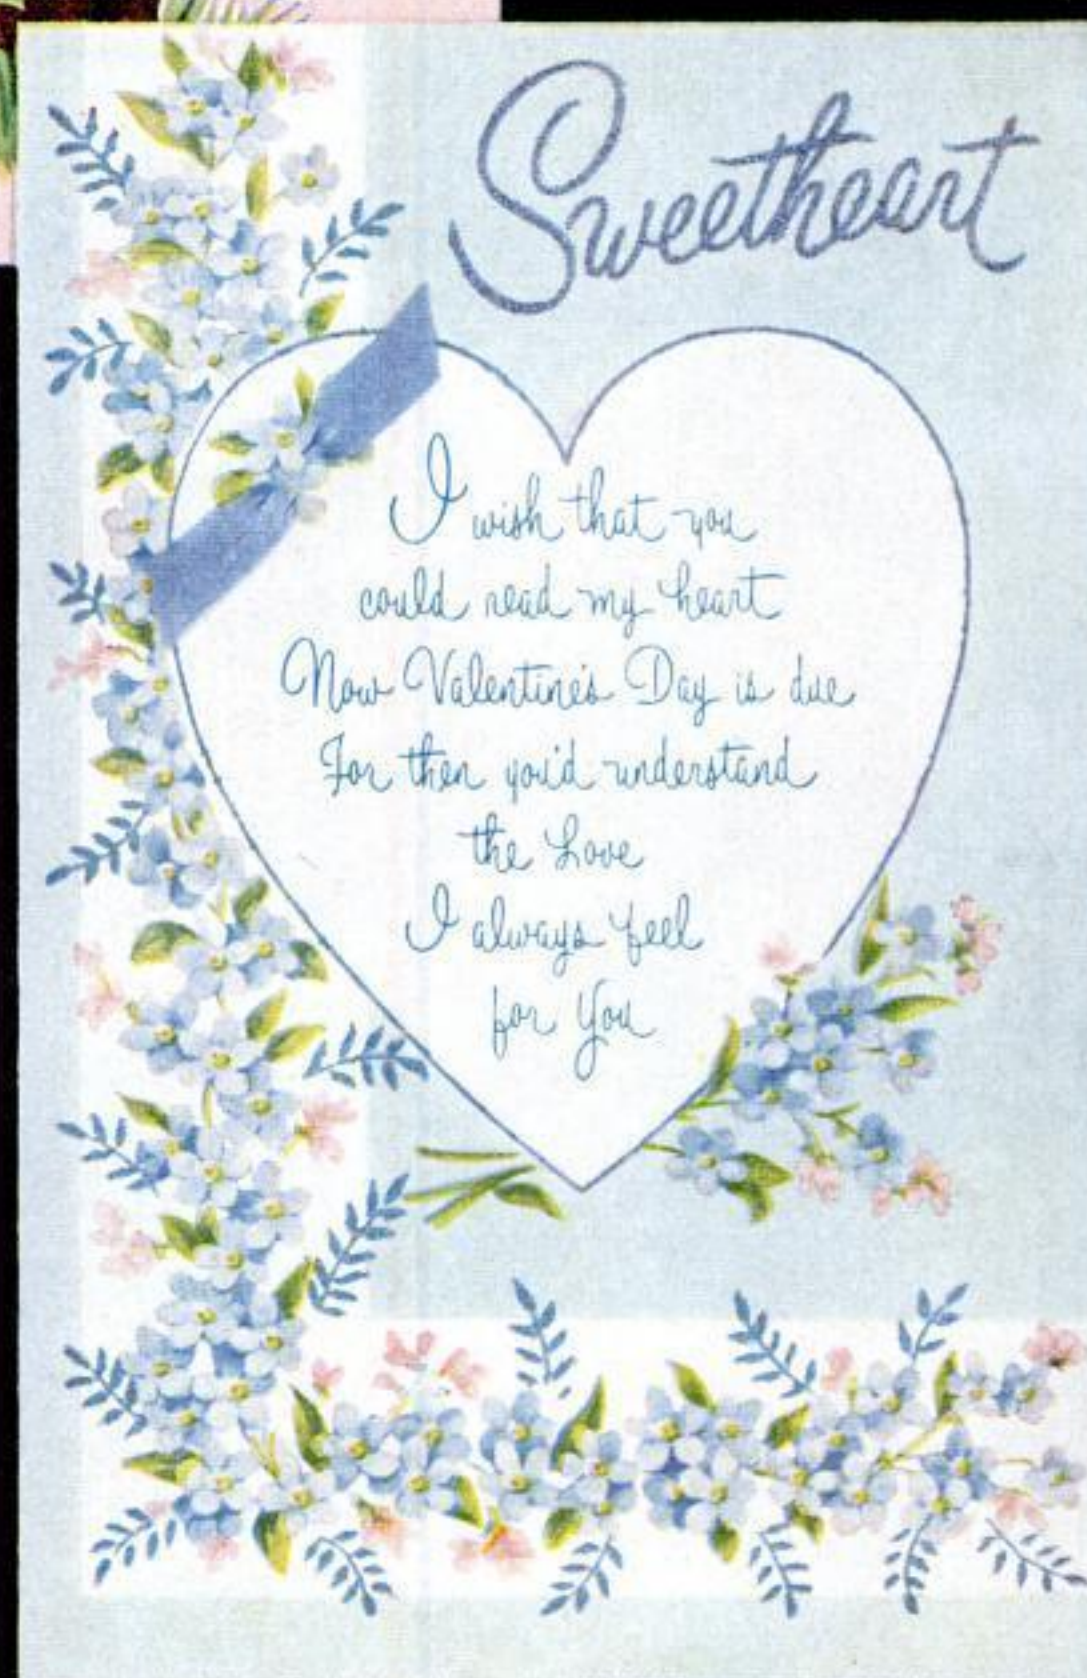 Sweetheart
I wish that you
could read my heart
Now Valentine's Day is due
For then you'd understand
the Love
I always feel
for You